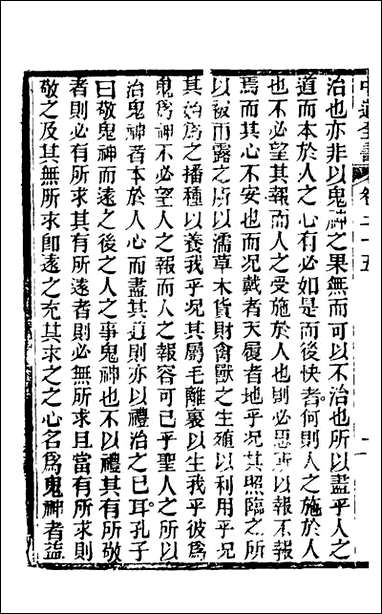 中道全書 卷二十五
治也亦非以鬼神之果無而可以不治也所以盡乎人之
道而本於人之心有必如是而後快者何則人之施於人
也不必望其報而人之受施於人也則必思所以報不報
焉而其心不安也而况戴者天履者地乎况其照臨之所
以被雨露之所以濡草木貨財禽獸之生殖以利用乎况
其始爲之播種以養我乎况其屬毛離裏以生我乎彼爲
鬼爲神不必望人之報而人之報容可已乎聖人之所以
治鬼神者本於人心而盡其道則亦以禮治之已耳孔子
曰敬鬼神而遠之後之人之事鬼神也不以禮其有所敬
者則必有所求其有所遠者則必無所求且當有所求則
敬之及其無所求卽遠之充其求之之心名爲鬼神者益